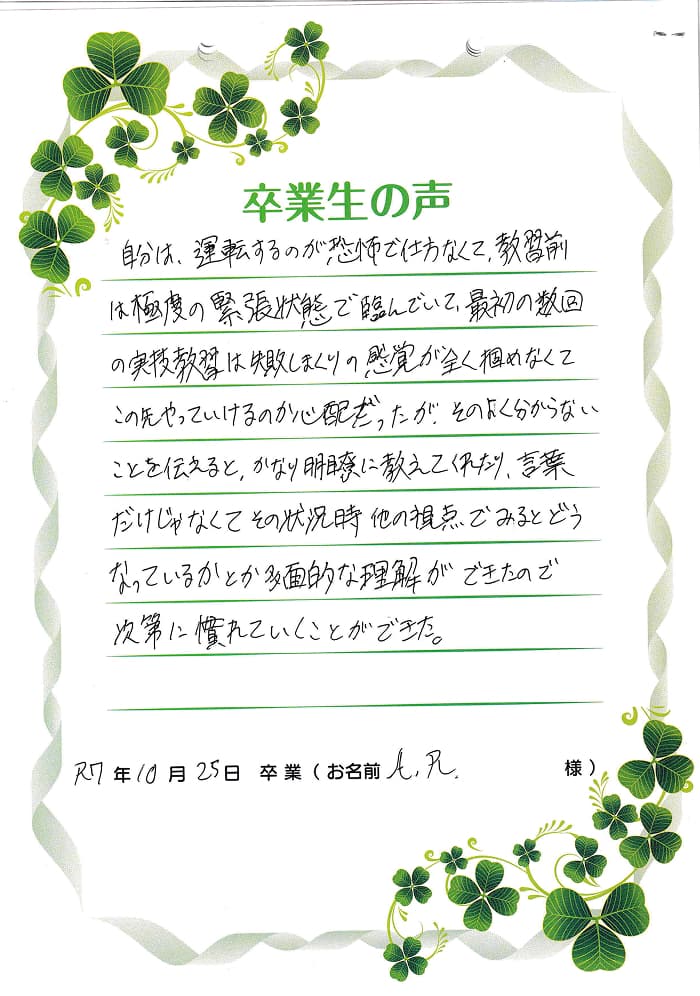 卒業生の声
自分は、運転するのが恐怖で仕方なくて、教習前
は極度の緊張状態で臨んでいて、最初の数回
の実技教習は失敗しまくりの感覚が全く掴めなくて
この先やっていけるのか心配だったが、そのよく分からない
ことを伝えると、かなり明瞭に教えてくれたり、言葉
だけじゃなくてその状況時他の視点でみるとどう
なっているかとか多面的な理解ができたので
次第に慣れていくことができた。
R7年10月25日 卒業(お名前 A.R. 様)